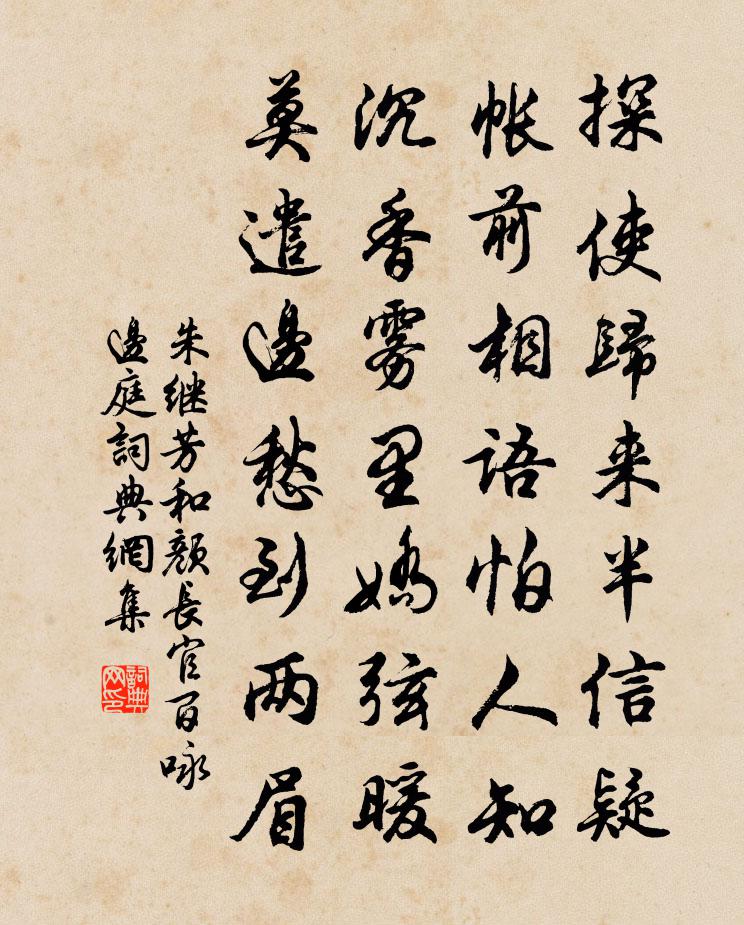 探使歸来半信疑
帐前相語怕人知
沉香雾里嬌弦暖
莫遣邊愁到两眉
朱继芳和顏長官百咏
邊庭詞典網集
詞典网印